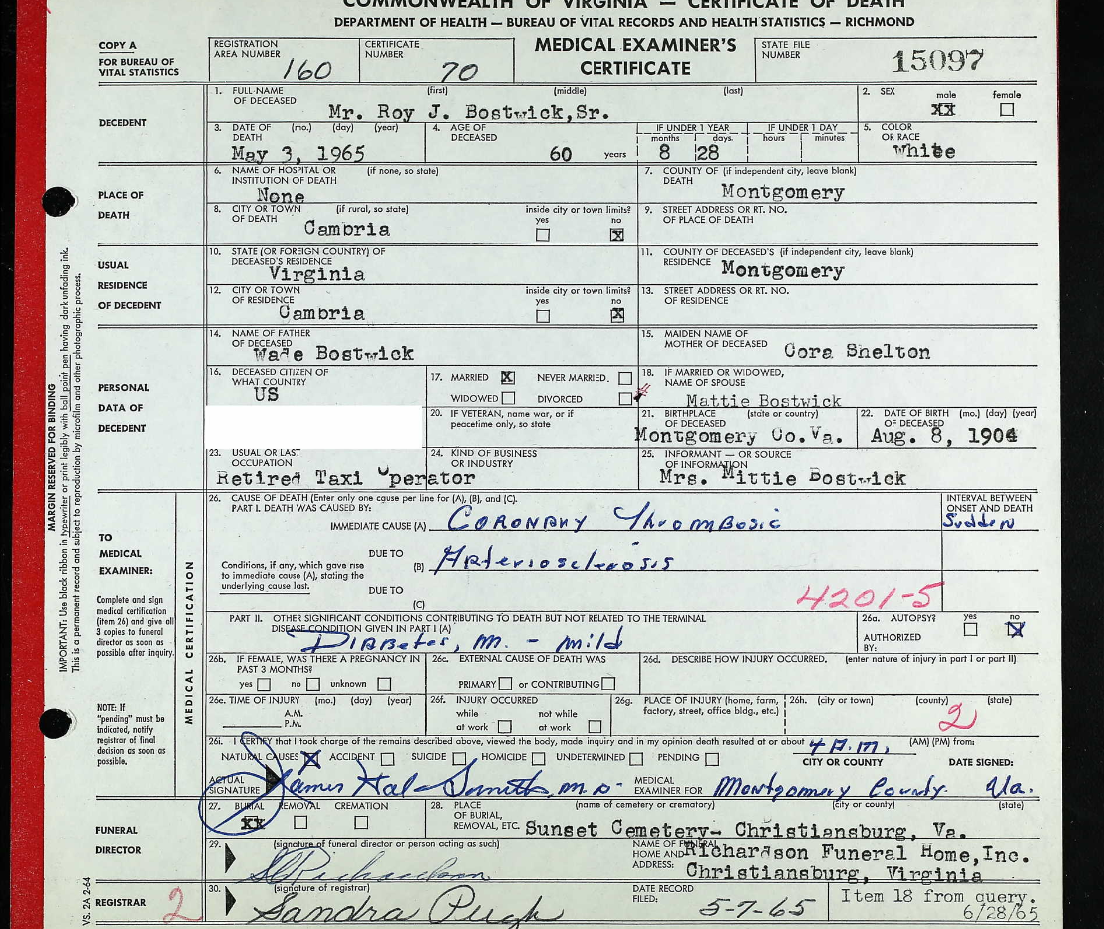 COMMONWEALTH OF VIRGINIA — CERTIFICATE OF DEATH
DEPARTMENT OF HEALTH — BUREAU OF VITAL RECORDS AND HEALTH STATISTICS — RICHMOND
COPY A
FOR BUREAU OF
VITAL STATISTICS
REGISTRATION
AREA NUMBER 160
CERTIFICATE
NUMBER 70
MEDICAL EXAMINER'S
CERTIFICATE
STATE FILE
NUMBER 15097
DECEDENT
1. FULL NAME (first) (middle) (last)
OF DECEASED Mr. Roy J. Bostwick,Sr.
2. SEX male female
XX
3. DATE OF (no.) (day) (year)
DEATH
May 3, 1965
4. AGE OF
DECEASED
60 years
IF UNDER 1 YEAR IF UNDER 1 DAY
months days. hours minutes
8 28
5. COLOR
OR RACE
White
PLACE OF
DEATH
6. NAME OF HOSPITAL OR (if none, so state)
INSTITUTION OF DEATH
None
7. COUNTY OF (if independent city, leave blank)
DEATH Montgomery
8. CITY OR TOWN (if rural, so state) inside city or town limits?
OF DEATH yes no
Cambria X
9. STREET ADDRESS OR RT. NO.
OF PLACE OF DEATH
USUAL
RESIDENCE
OF DECEDENT
10. STATE (OR FOREIGN COUNTRY) OF
DECEASED'S RESIDENCE
Virginia
11. COUNTY OF DECEASED'S (if independent city, leave blank)
RESIDENCE Montgomery
12. CITY OR TOWN inside city or town limits?
OF RESIDENCE yes no
Cambria X
13. STREET ADDRESS OR RT. NO.
OF RESIDENCE
PERSONAL
DATA OF
DECEDENT
14. NAME OF FATHER
OF DECEASED
Wade Bostwick
15. MAIDEN NAME OF
MOTHER OF DECEASED Cora Shelton
16. DECEASED CITIZEN OF
WHAT COUNTRY
US
17. MARRIED X NEVER MARRIED.
WIDOWED DIVORCED
18. IF MARRIED OR WIDOWED,
NAME OF SPOUSE
Mattie Bostwick
20. IF VETERAN, name war, or if
peacetime only, so state
21. BIRTHPLACE (state or country)
OF DECEASED
Montgomery Co.Va.
22. DATE OF BIRTH (mo.) (day) (year)
OF DECEASED
Aug. 8, 1904
23. USUAL OR LAST
OCCUPATION
Retired Taxi Operator
24. KIND OF BUSINESS
OR INDUSTRY
25. INFORMANT — OR SOURCE
OF INFORMATION
Mrs. Mittie Bostwick
MARGIN RESERVED FOR BINDING
IMPORTANT: Use black ribbon in typewriter or print legibly with ball point pen having dark unfading ink.
This is a permanent record and subject to reproduction by microfilm and other photographic process.
TO
MEDICAL
EXAMINER:
Complete and sign
medical certification
(item 26) and give all
3 copies to funeral
director as soon as
possible after inquiry.
NOTE: If
"pending" must be
indicated, notify
registrar of final
decision as soon as
possible.
MEDICAL CERTIFICATION
26. CAUSE OF DEATH (Enter only one cause per line for (A), (B), and (C).
PART I. DEATH WAS CAUSED BY:
IMMEDIATE CAUSE (A) CORONARY ThromBosis
INTERVAL BETWEEN
ONSET AND DEATH
Sudden
DUE TO
(B) Arteriosclerosis
Conditions, if any, which gave rise
to immediate cause (A), stating the
underlying cause last.
DUE TO
(C)
4201-5
PART II. OTHER SIGNIFICANT CONDITIONS CONTRIBUTING TO DEATH BUT NOT RELATED TO THE TERMINAL
DISEASE CONDITION GIVEN IN PART I (A)
DiABetes, M. - mild
26a. AUTOPSY? yes no
AUTHORIZED
BY:
26b. IF FEMALE, WAS THERE A PREGNANCY IN
PAST 3 MONTHS?
yes no unknown
26c. EXTERNAL CAUSE OF DEATH WAS
PRIMARY or CONTRIBUTING
26d. DESCRIBE HOW INJURY OCCURRED. (enter nature of injury in part I or part II)
26e. TIME OF INJURY (mo.) (day) (year)
A.M.
P.M.
26f. INJURY OCCURRED
while not while
at work at work
26g. PLACE OF INJURY (home, farm,
factory, street, office bldg., etc.)
26h. (city or town) (county) (state)
2
26i. I CERTIFY that I took charge of the remains described above, viewed the body, made inquiry and in my opinion death resulted at or about 4 A.M, (AM) (PM) from:
NATURAL CAUSES X ACCIDENT SUICIDE HOMICIDE UNDETERMINED PENDING CITY OR COUNTY DATE SIGNED:
ACTUAL
SIGNATURE James Hal Smith, M.D. MEDICAL
EXAMINER FOR Montgomery County. Va.
FUNERAL
DIRECTOR
27. BURIAL REMOVAL CREMATION
XX
28. PLACE (name of cemetery or crematory) (city or county) (state)
OF BURIAL,
REMOVAL, ETC. Sunset Cemetery- Christiansburg, Va.
29. (signature of funeral director or person acting as such)
Richardson
NAME OF FUNERAL
HOME AND
ADDRESS: Richardson Funeral Home,Inc.
Christiansburg, Virginia
REGISTRAR 2
30. (signature of registrar)
Sandra Pugh
DATE RECORD
FILED: 5-7-65
Item 18 from query.
6/28/65
VS. 2A 2-64